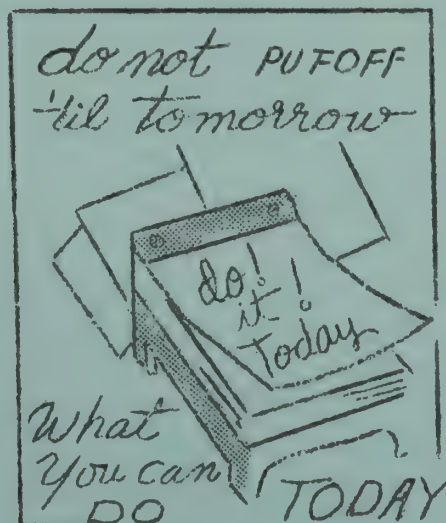 do not PUTOFF
'til tomorrow
do!
it!
Today
What
You can
DO TODAY